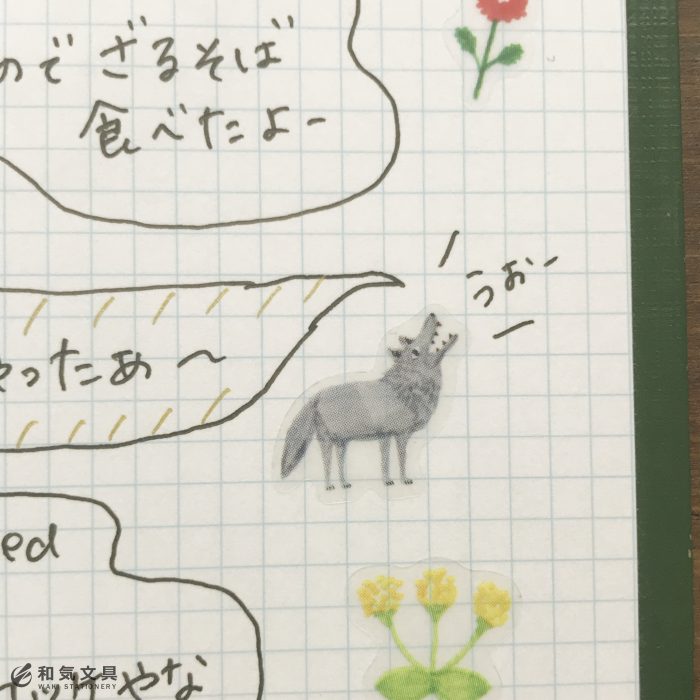 ので ざるそば
食べたよー
うおー
ったあ〜
ed
和気文具
WAKI STATIONERY
やな